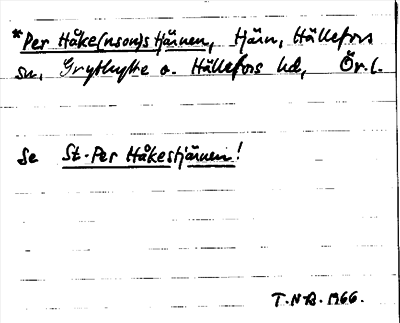 *Per Håke(nson)s tjärnen, tjärn, Hällefors
sn, Grythytte o. Hällefors hd, Ör. l.
Se St. Per Håkestjärnen!
T.N-B. 1966.